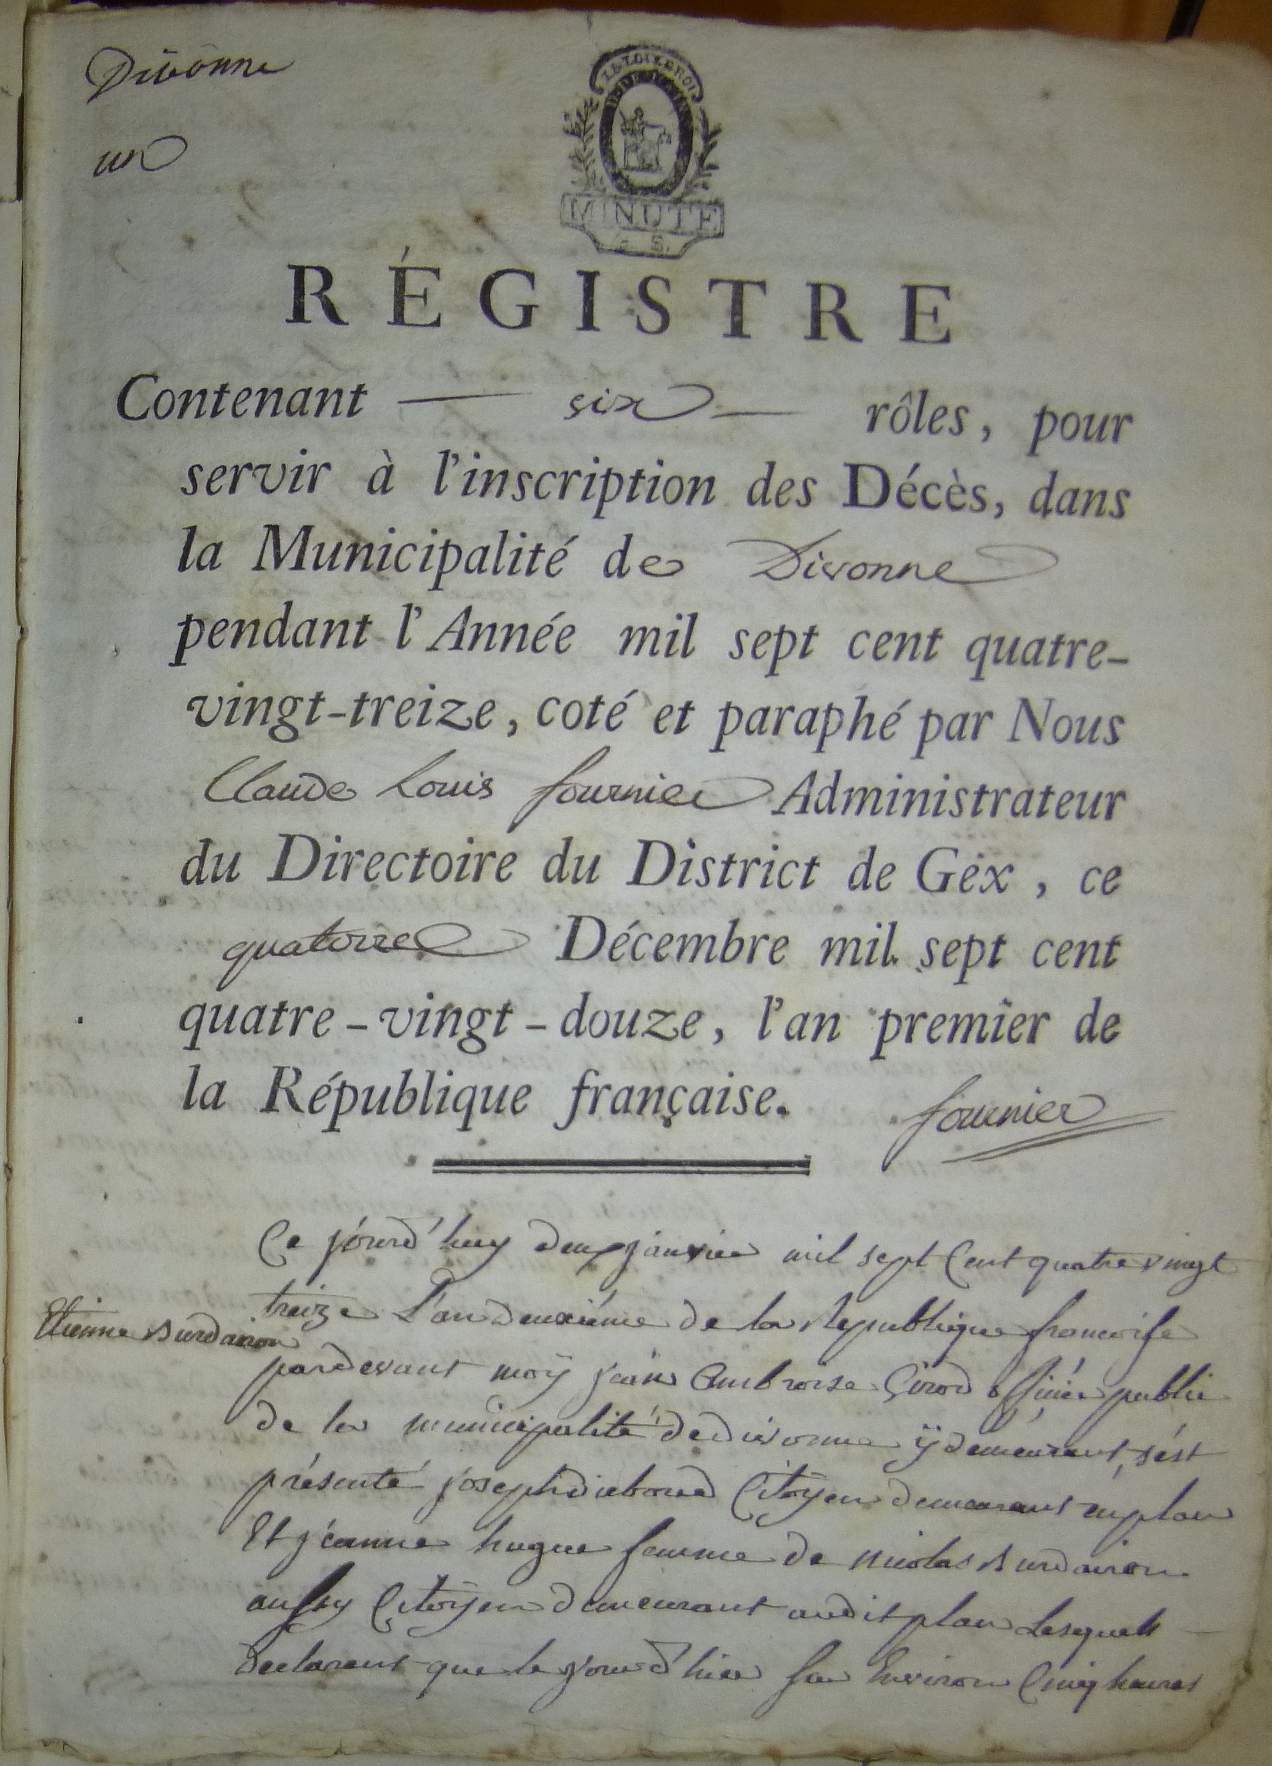 Divonne
un
LA LOI LE ROI
MINUTE
S.
RÉGISTRE
Contenant — six — rôles, pour
servir à l'inscription des Décès, dans
la Municipalité de Divonne
pendant l'Année mil sept cent quatre-
vingt-treize, coté et paraphé par Nous
Claude Louis fournier Administrateur
du Directoire du District de Gex, ce
quatorze Décembre mil sept cent
quatre-vingt-douze, l'an premier de
la République française.
fournier
Ce jourd'huy deux janvier mil sept Cent quatre vingt
treize L'an deuxiéme de la Republique francoise
Etienne Burdairon
pardevant moÿ jean Ambroise Girod officier public
de la municipalité de divonne ÿ demeurant, s'ést
présenté joseph Citoÿen demeurant en plan
Et jéanne hugue femme de nicolas Burdairon
aussy Citoÿen demeurant audit plan Lesquels
declarent que le jourd'hier sur Environ Cinq heures